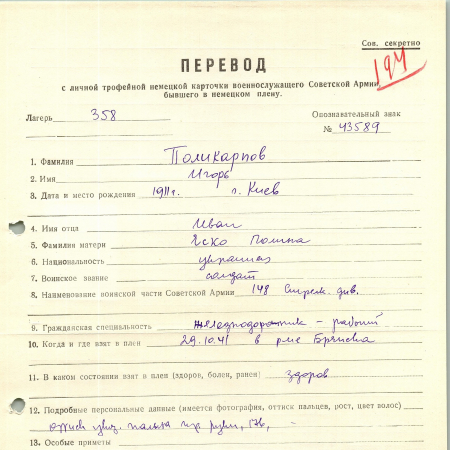 Сов. секретно
194
ПЕРЕВОД
с личной трофейной немецкой карточки военнослужащего Советской Армии,
бывшего в немецком плену.
Лагерь 358
Опознавательный знак
№ 43589
1. Фамилия Поликарпов
2. Имя Игорь
3. Дата и место рождения 1911г. г. Киев
4. Имя отца Иван
5. Фамилия матери Еско Полина
6. Национальность украинец
7. Воинское звание солдат
8. Наименование воинской части Советской Армии 148 стрелк. див.
9. Гражданская специальность железнодорожник – рабочий
10. Когда и где взят в плен 29.10.41 в р-не Брянска
11. В каком состоянии взят в плен (здоров, болен, ранен) здоров
12. Подробные персональные данные (имеется фотография, оттиск пальцев, рост, цвет волос)
пальца руки,
13. Особые приметы